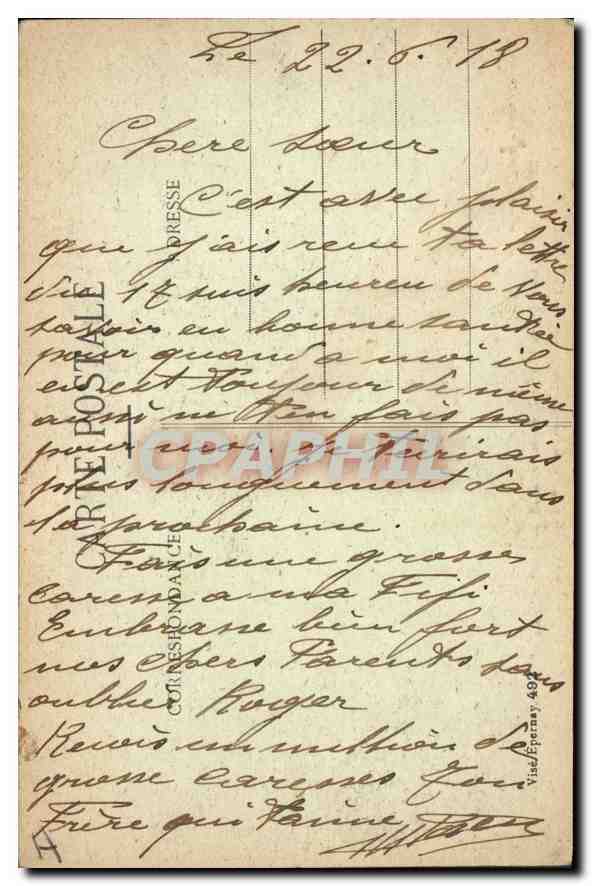 Le 22.6.18
Chere sœur
C'est avec plaisir
que j'ais recu ta lettre
du 17 suis heureu de vous
savoir en bonne santée
pour quand a moi il
en est toujour de même
aussi ne t'en fais pas
pour moi. Je t'ecrirais
plus longuement dans
la prochaine.
Fais une grosses
caresse a ma Fifi
Embrasse bien fort
nos chers Parents sans
oublier Roger
Recois un million de
grosse caresses Ton
Frère qui t'aime
CARTE POSTALE
CORRESPONDANCE
ADRESSE
Visé/Epernay 492
CPAPHIL